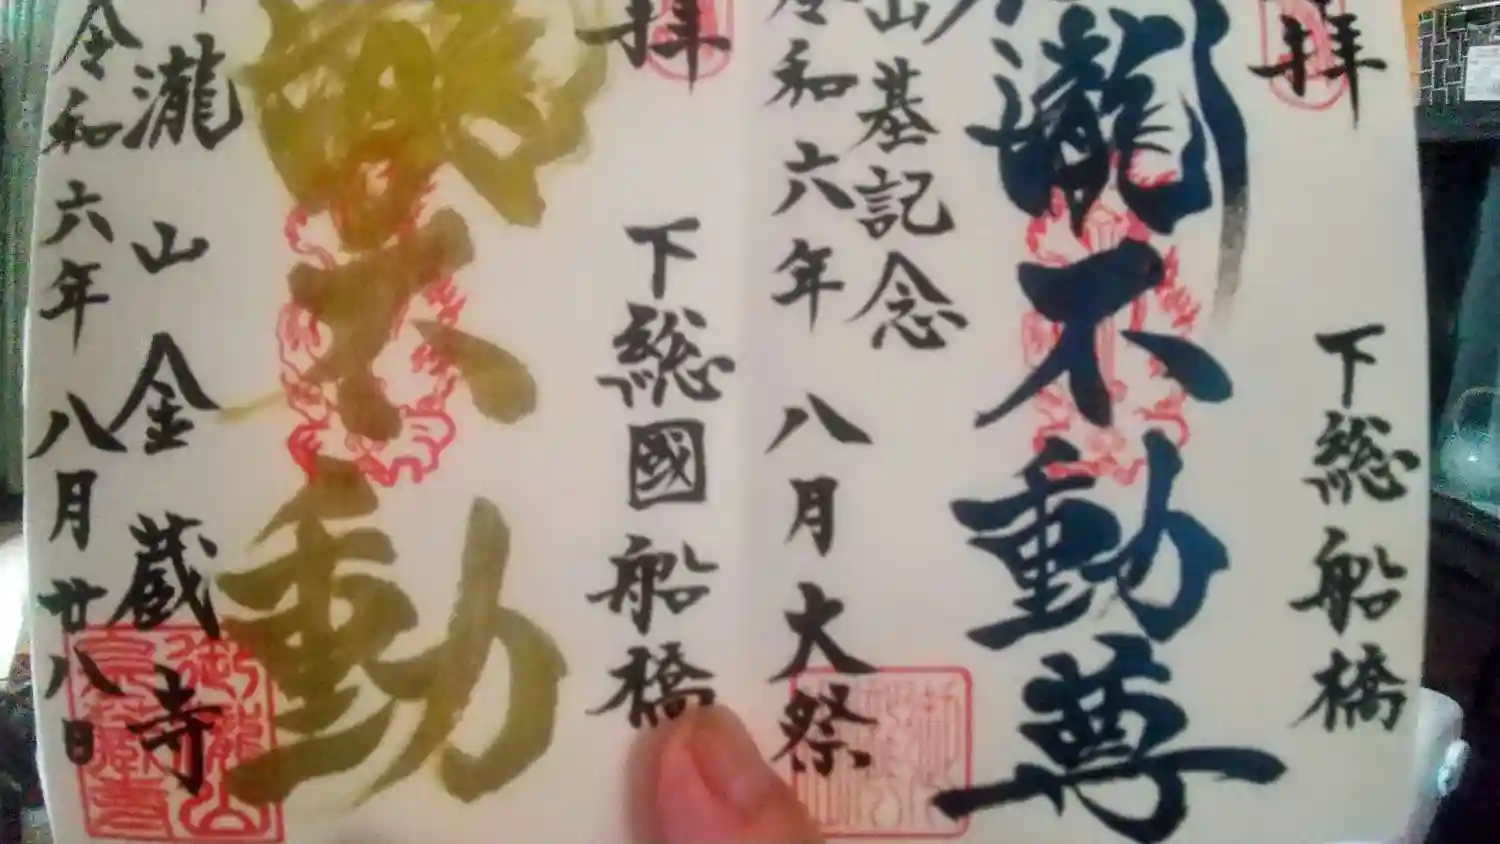 拝
下総船橋
瀧不動尊
山基記念
令和六年 八月大祭
拝
下総國船橋
不動
瀧山金蔵寺
令和六年 八月廿八日